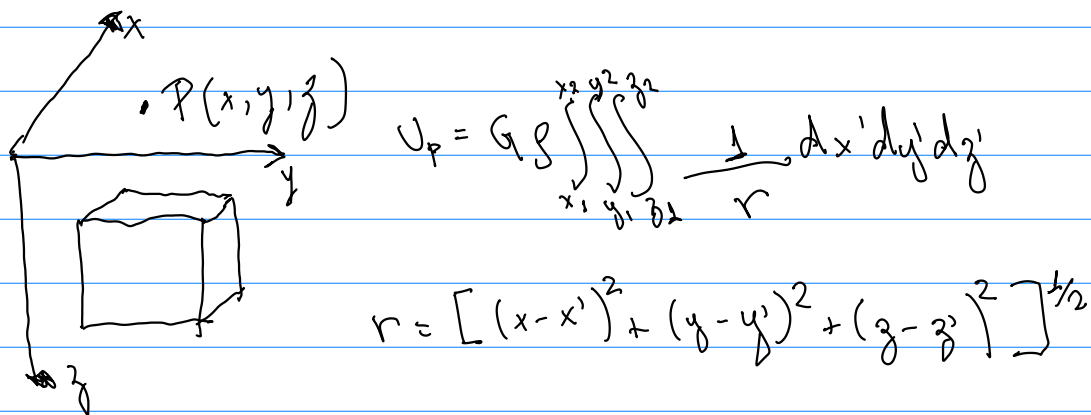 x
. P(x, y, z)
y
z
U_P = Gρ ∫_{x1}^{x2} ∫_{y1}^{y2} ∫_{z1}^{z2} 1/r dx'dy'dz'
r = [(x-x')^2 + (y-y')^2 + (z-z')^2]^{1/2}